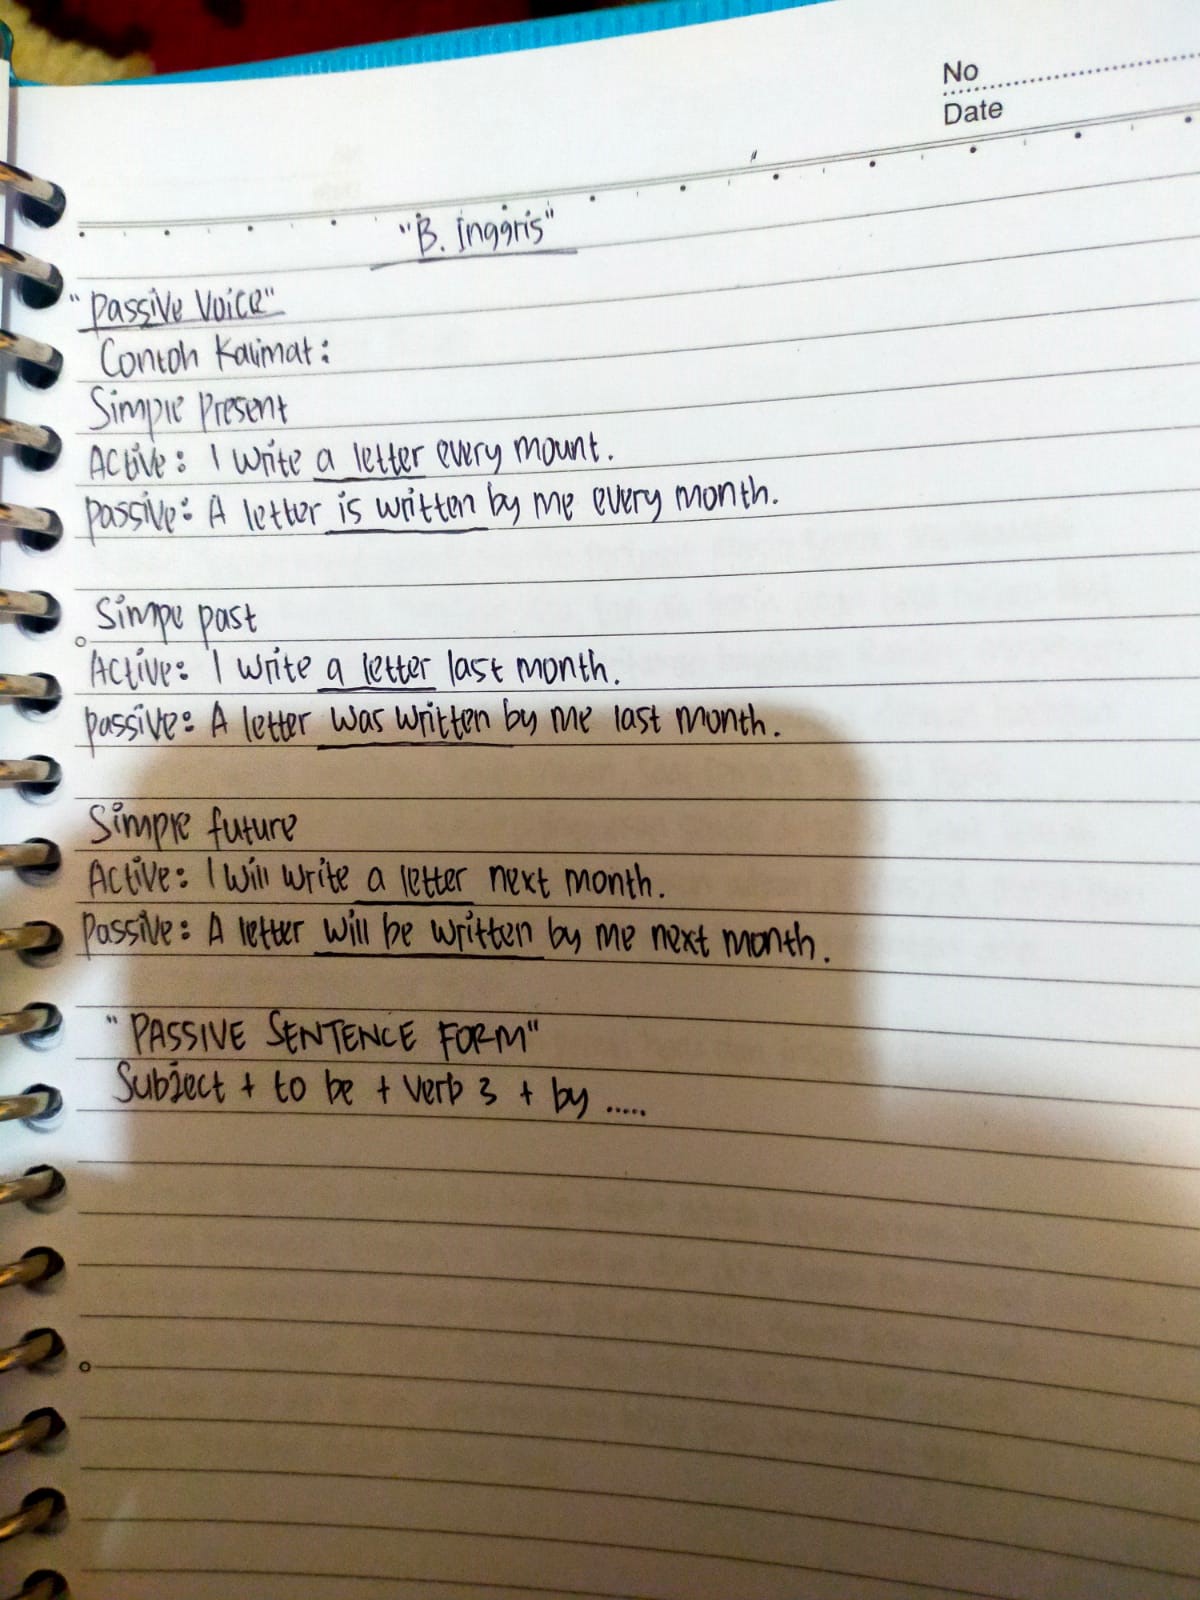 No
Date
"B. Inggris"
"Passive Voice"
Contoh Kalimat:
Simple Present
Active: I write a letter every mount.
Passive: A letter is written by me every month.
Simpe past
Active: I write a letter last month.
Passive: A letter was written by me last month.
Simple future
Active: I will write a letter next month.
Passive: A letter will be written by me next month.
"PASSIVE SENTENCE FORM"
Subject + to be + Verb 3 + by .....